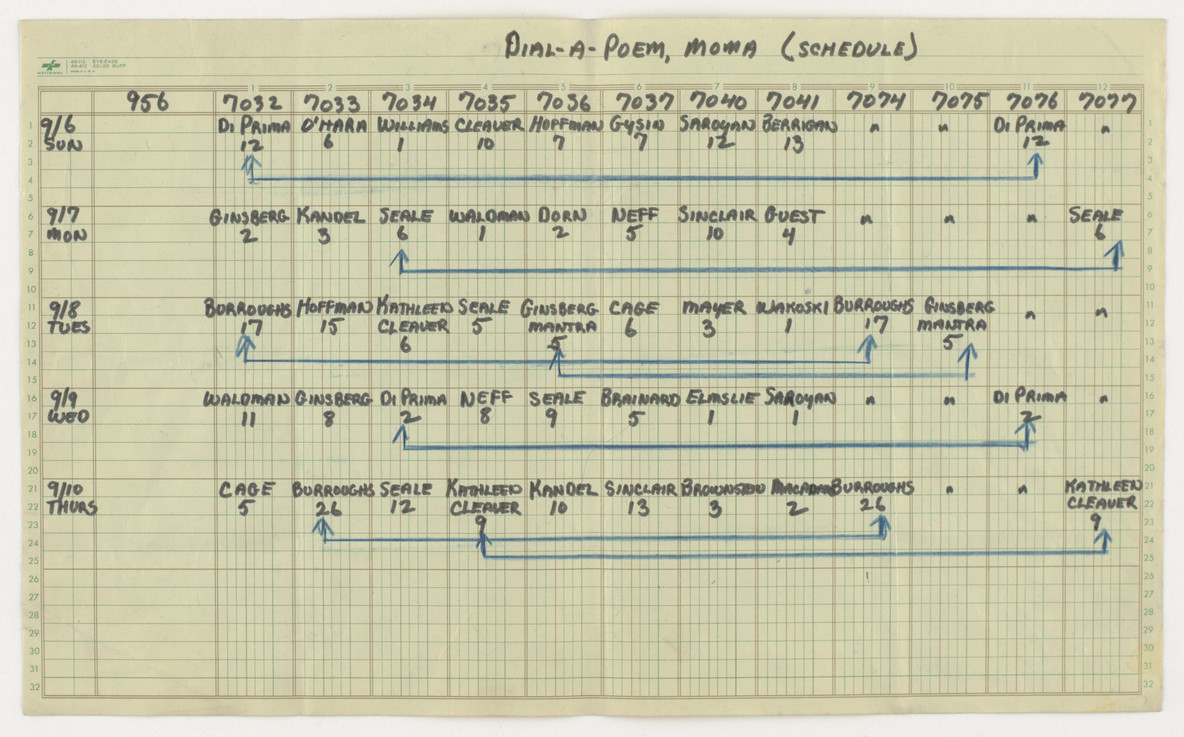 DIAL-A-POEM, MOMA (SCHEDULE)
NATIONAL
1 2 3 4 5 6 7 8 9 10 11 12
956 7032 7033 7034 7035 7036 7037 7040 7041 7074 7075 7076 7077
9/6 DI PRIMA O'HARA WILLIAMS CLEAVER HOFFMAN GYSIN SAROYAN BERRIGAN " " DI PRIMA "
SUN 12 6 1 10 7 7 12 13 12
9/7 GINSBERG KANDEL SEALE WALDMAN DORN NEFF SINCLAIR GUEST " " " SEALE
MON 2 3 6 1 2 5 10 4 6
9/8 BURROUGHS HOFFMAN KATHLEEN SEALE GINSBERG CAGE MAYER WAKOSKI BURROUGHS GINSBERG " "
TUES 17 15 CLEAVER 5 MANTRA 6 3 1 17 MANTRA
6 5 5
9/9 WALDMAN GINSBERG DI PRIMA NEFF SEALE BRAINARD ELMSLIE SAROYAN " " DI PRIMA "
WED 11 8 2 8 9 5 1 1 2
9/10 CAGE BURROUGHS SEALE KATHLEEN KANDEL SINCLAIR BROWNSTEIN MACADAMS BURROUGHS " " KATHLEEN
THURS 5 26 12 CLEAVER 10 13 3 2 26 CLEAVER
9 9